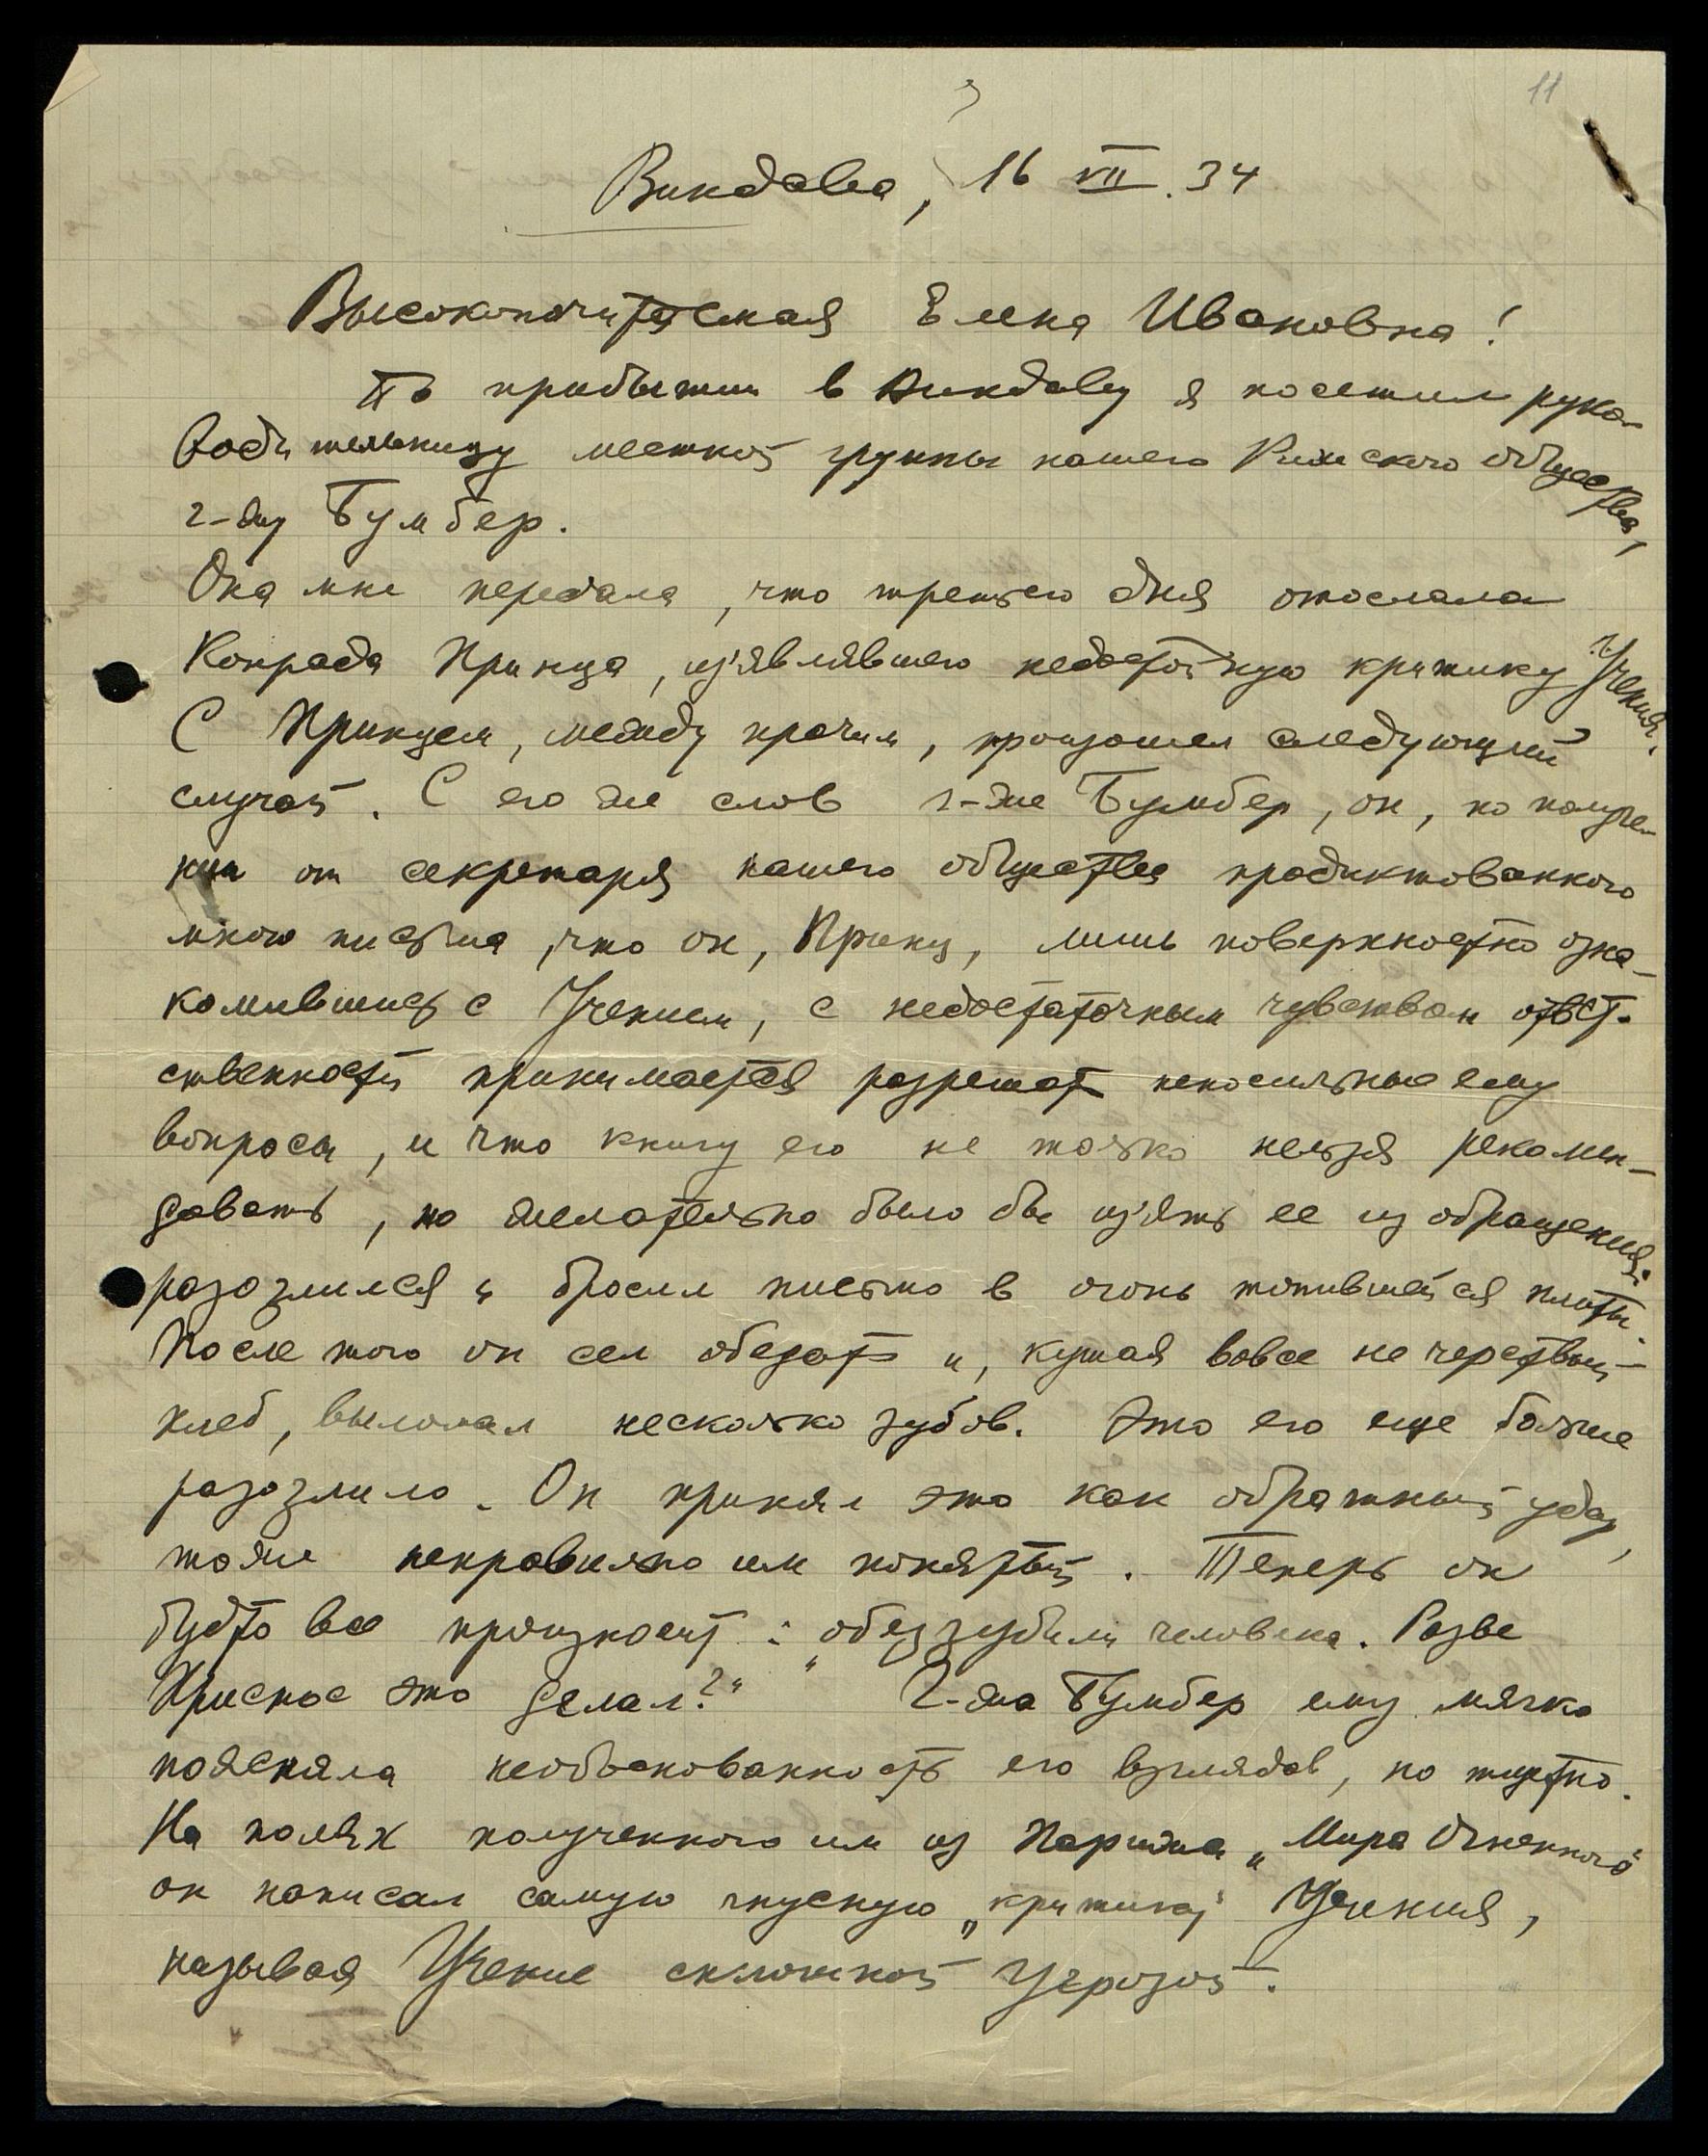 11
Виндава, 16 VII. 34
Высокопочитаемая Елена Ивановна!
По прибытии в Виндаву я посетил руко-
водительницу местной группы нашего Рижского общества,
г-жу Бумбер.
Она мне передала, что третьего дня отослала
Конрада Принца, из'являвшего недостойную критику Учения.
С Принцем, между прочим, произошел следующий
случай. С его же слов г-же Бумбер, он, по получе-
нии от секретаря нашего общества продиктованного
мною письма, что он, Принц, лишь поверхностно озна-
комившись с Учением, с недостаточным чувством ответ-
ственности принимается разрешать непосильные ему
вопросы, и что книгу его не только нельзя рекомен-
довать, но желательно было бы из'ять ее из обращения,
разозлился и бросил письмо в огонь топившейся плиты.
После того он сел обедать и, кушая вовсе не черствый
хлеб, выломал несколько зубов. Это его еще больше
разозлило. Он принял это как обратный удар,
тоже неправильно им понятый. Теперь он
будто все произносит: „обеззубили человека. Разве
Христос это делал?“ Г-жа Бумбер ему мягко
поясняла необоснованность его взглядов, но тщетно.
На полях полученного им из Парижа „Мира Огненного“
он написал самую гнусную „критику“ Учения,
называя Учение сплошной Угрозой.